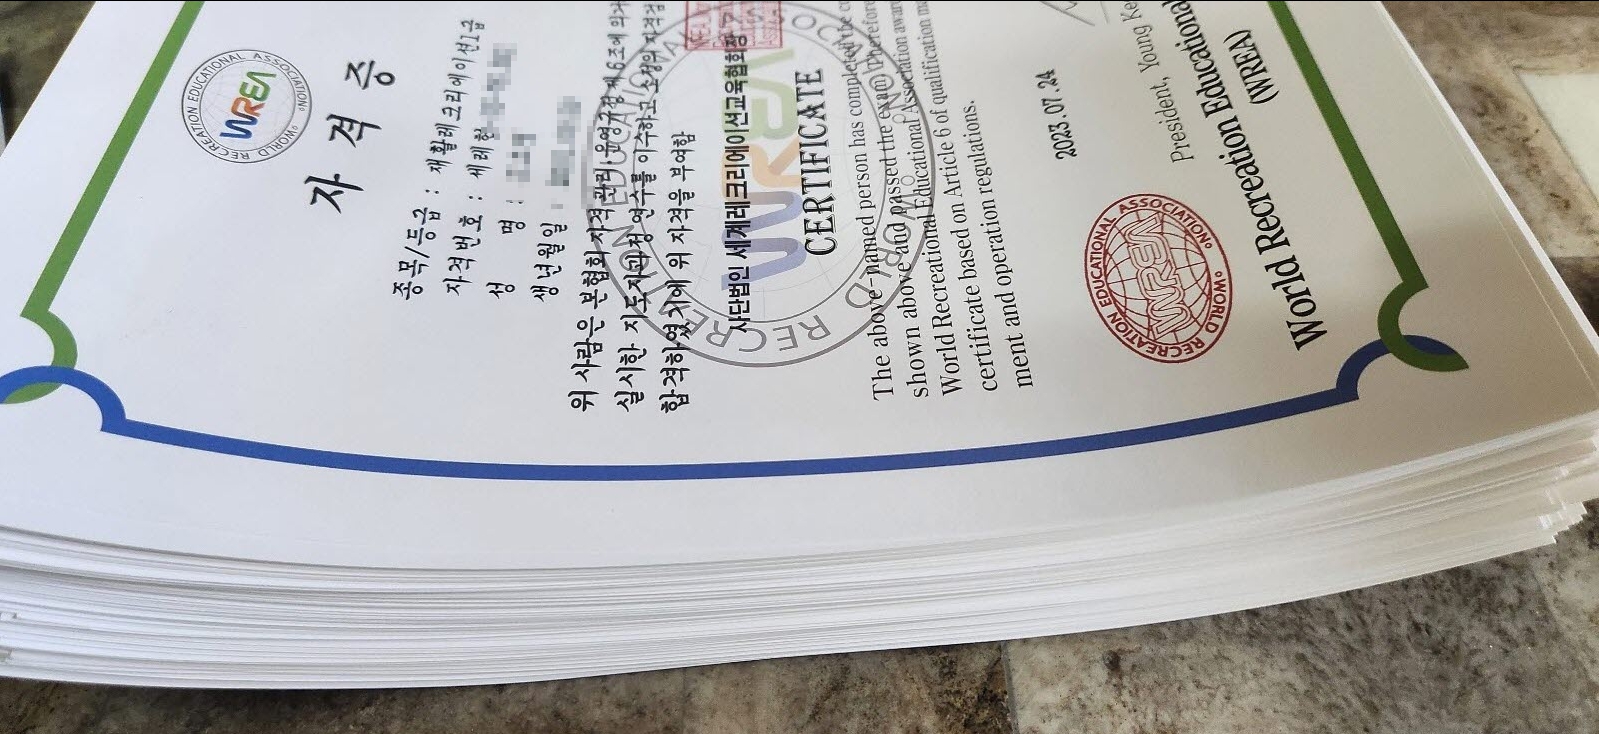 RECREATION EDUCATIONAL ASSOCIATION WORLD
WREA
자격증
종목/등급 : 재활레크리에이션1급
자격번호 : 세레협
성 명 :
생년월일 :
위 사람은 본협회 자격관리·운영규정 제6조에 의거
실시한 지도자과정 연수를 이수하고 소정의 자격검
합격하였기에 위 자격을 부여함
사단법인 세계레크리에이션교육협회장
CERTIFICATE
The above-named person has completed the
shown above and passed the exam. Therefore
World Recreational Educational Association
certificate based on Article 6 of qualification
ment and operation regulations.
2023.07.24
President, Young
World Recreation Educational
(WREA)
WORLD RECREATION EDUCATIONAL ASSOCIATION
WREA